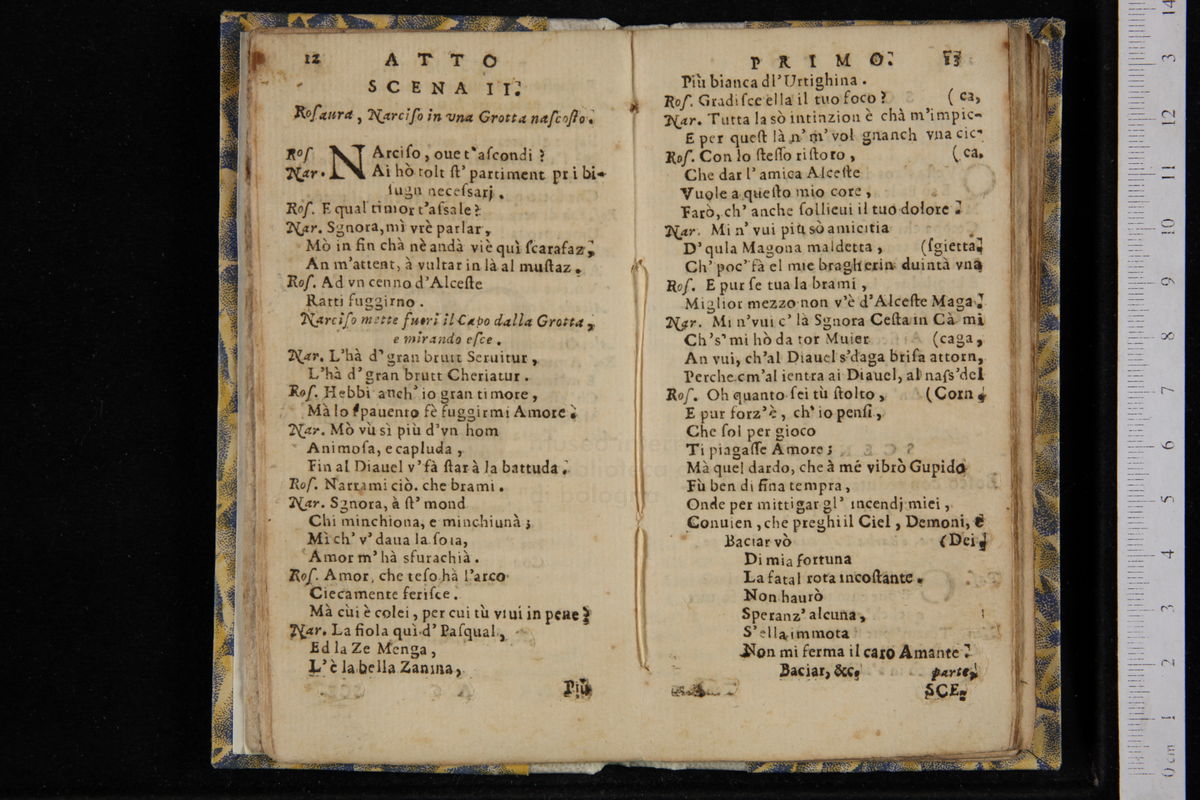 12 ATTO
SCENA II.
Rosaura, Narciso in vna Grotta nascosto.
Ros. NArciso, oue t'ascondi?
Nar. Ai hò tolt st' partiment pr i bi-
sugn necessarj.
Ros. E qual timor t'assale?
Nar. Sgnora, mì vrè parlar,
Mò in fin chà nè andà viè quì scarafaz,
An m'attent, à vultar in là al mustaz.
Ros. Ad vn cenno d'Alceste
Ratti fuggirno.
Narciso mette fuori il Capo dalla Grotta,
e mirando esce.
Nar. L'hà d' gran brutt Seruitur,
L'hà d' gran brutt Cheriatur.
Ros. Hebbi anch' io gran timore,
Mà lo spauento fè fuggirmi Amore.
Nar. Mò vù sì più d'vn hom
Animosa, e capluda,
Fin al Diauel v' fà star à la battuda.
Ros. Narrami ciò, che brami.
Nar. Sgnora, à st' mond
Chi minchiona, e minchiunà;
Mì ch' v' daua la soia,
Amor m' hà sfurachià.
Ros. Amor, che teso hà l'arco
Ciecamente ferisce.
Mà cùi è colei, per cui tù viui in pene?
Nar. La fiola quì d' Pasqual,
Ed la Ze Menga,
L' è la bella Zanina,
Più
PRIMO. 13
Più bianca dl' Urtighina.
Ros. Gradisce ella il tuo foco? (ca,
Nar. Tutta la sò intinzion è chà m'impic-
E per quest là n' m' vol gnanch vna cic-
Ros. Con lo stesso ristoro, (ca.
Che dar l' amica Alceste
Vuole a questo mio core,
Farò, ch' anche solleui il tuo dolore.
Nar. Mi n' vui più sò amicitia
D' qula Magona maldetta, (sgietta.
Ch' poc' fà el mie bragherin duintà vna
Ros. E pur se tua la brami,
Miglior mezzo non v'è d'Alceste Maga.
Nar. Mi n'vui c' là Sgnora Cesta in Cà mi
Ch's' mi hò da tor Muier (caga,
An vui, ch'al Diauel s'daga brisa attorn,
Perche cm'al ientra ai Diauel, al nass'del
Ros. Oh quanto sei tù stolto, (Corn.
E pur forz' è, ch' io pensi,
Che sol per gioco
Ti piagasse Amore;
Mà quel dardo, che à mé vibrò Gupido
Fù ben di fina tempra,
Onde per mittigar gl' incendj miei,
Conuien, che preghi il Ciel, Demoni, e
Baciar vò (Dei.
Di mia fortuna
La fatal rota incostante.
Non haurò
Speranz' alcuna,
S' ella immota
Non mi ferma il caro Amante.
Baciar, &c. parte.
SCE.